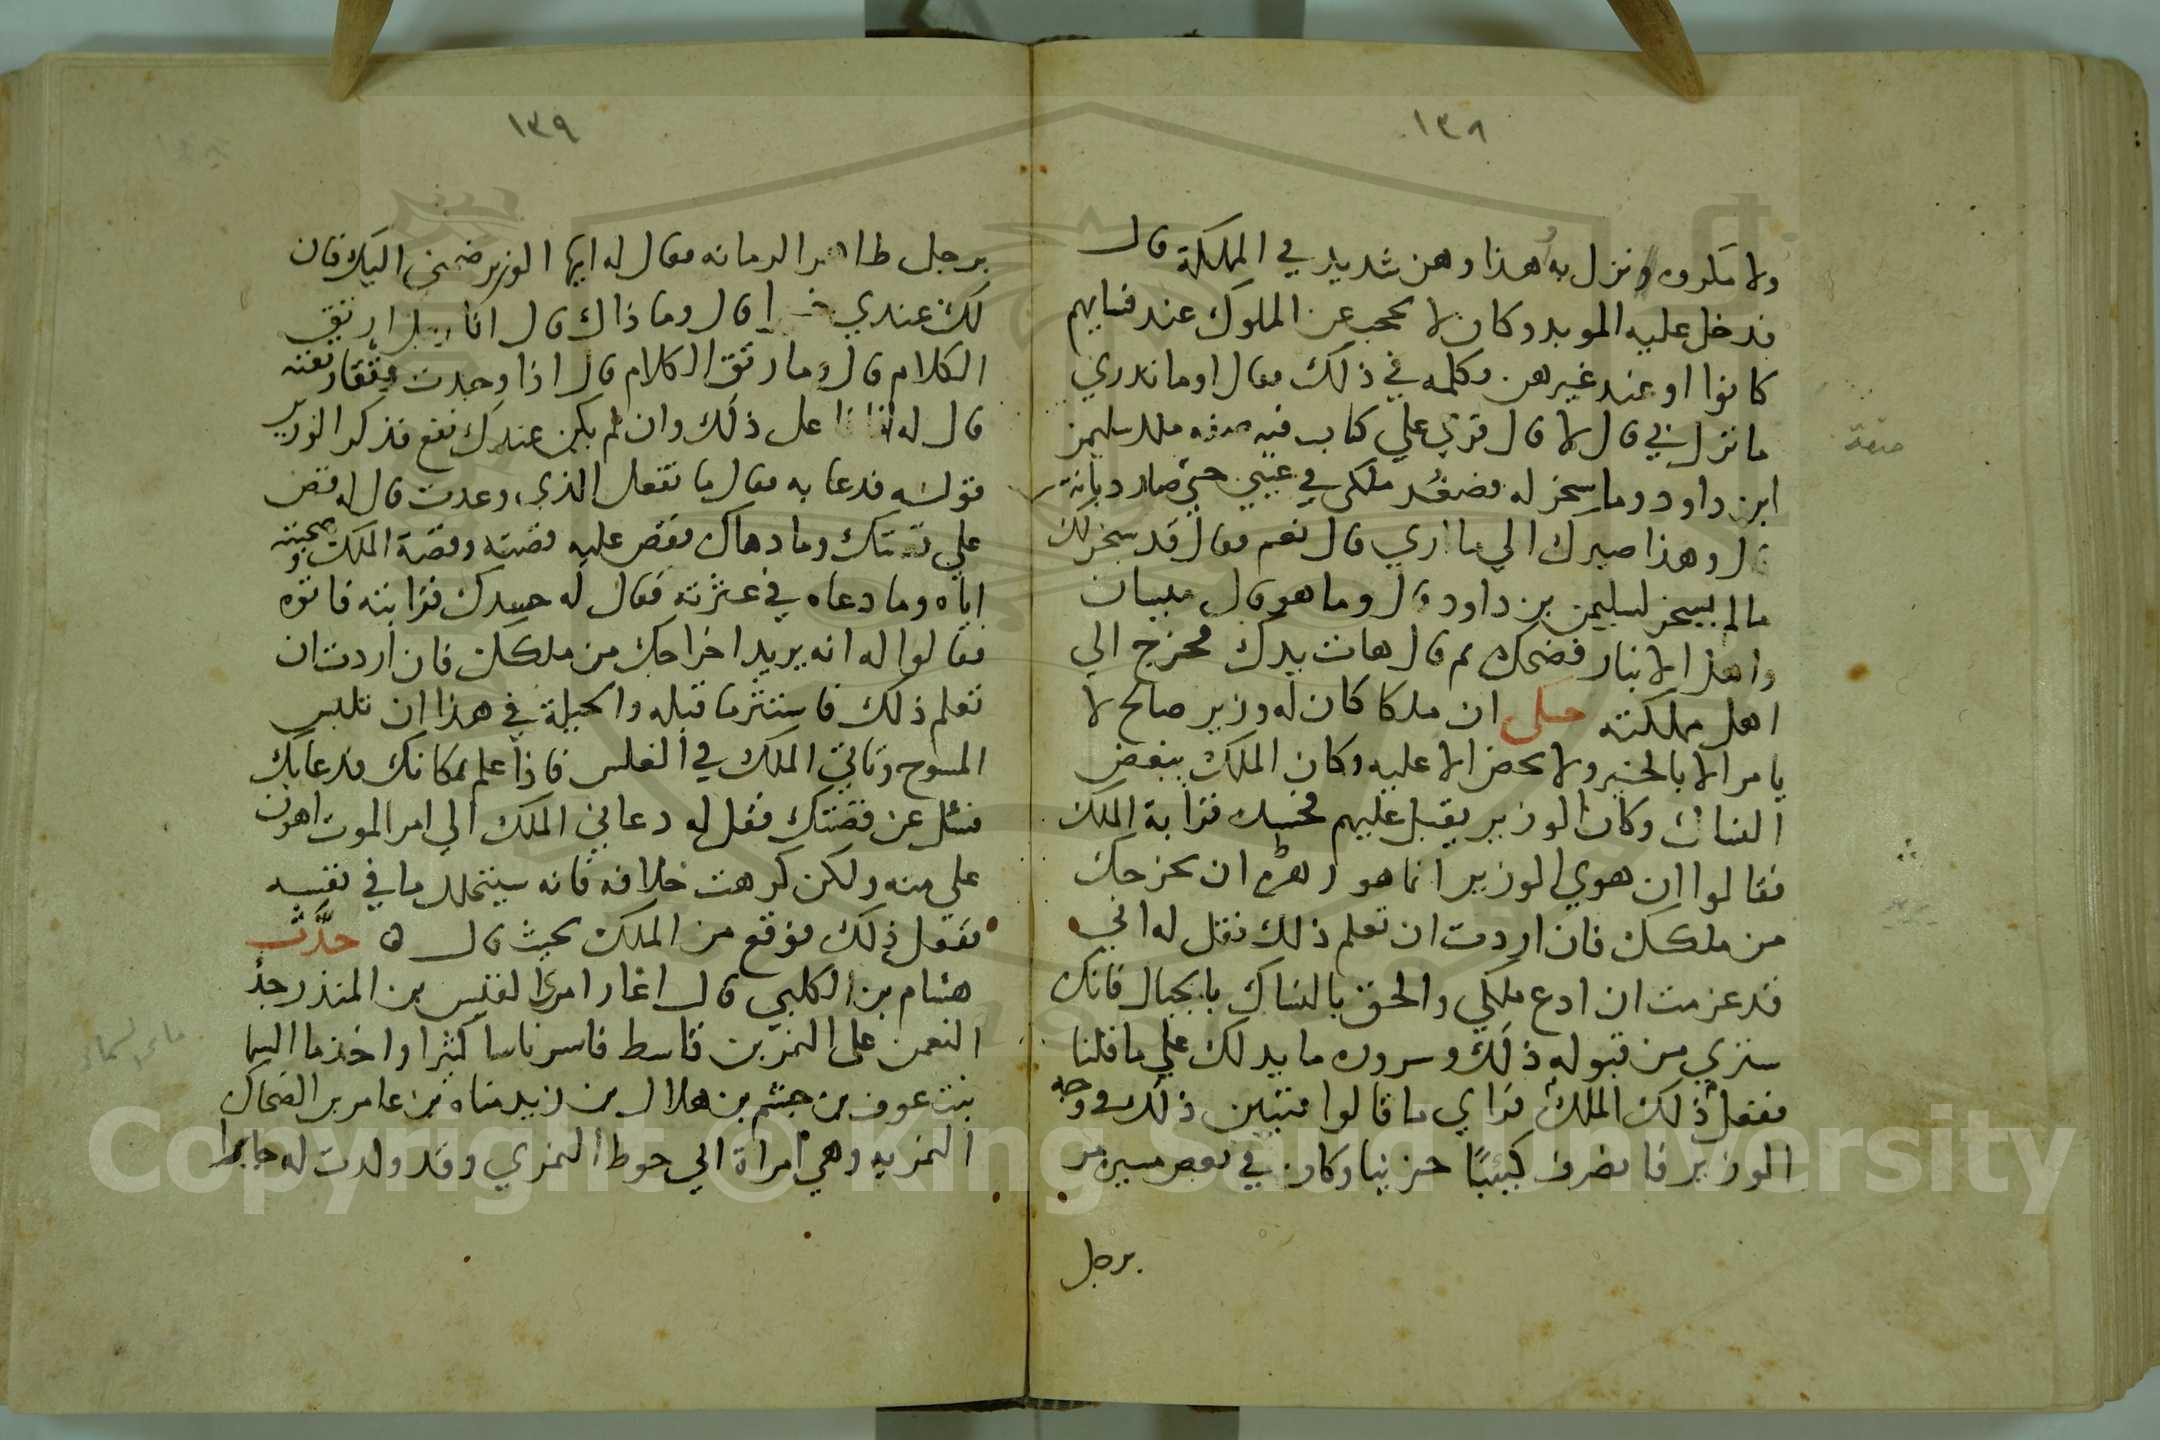 ١٣٨
ولا مكروه ونزل به هذا وهن شديد في المملكة قال
فدخل عليه الموبد وكان لا يحجب عن الملوك عند نسايهم
كانوا او عند غيرهن وكلمه في ذلك فقال اوما تدري
ما نزل بي قال لا قال قري علي كتاب فيه صفه ملك سليمن
ابن داود وما سخر له فصغر ملكي في عيني حتي صار
قال وهذا صيرك الي ما اري قال نعم فقال قد سخر لك
مالم يسخر لسليمن بن داود قال وما هو قال
واهل الانبار فضحك ثم قال هات يدك فخرج الي
اهل مملكته حكى ان ملكا كان له وزير صالح لا
يامر الا بالخير ولا يحض الا عليه وكان الملك يبغض
النساك وكان الوزير يقبل عليهم فحسدك قرابة الملك
فقالوا ان هوي الوزير انما هو ان يخرجك
من ملكك فان اردت ان تعلم ذلك فقل له اني
قد عزمت ان ادع ملكي والحق بالنساك بالجبال فانك
ستري من قبوله ذلك وسروره ما يدلك علي ما قلنا
ففعل ذلك الملك فراي ما قالوا فتبين ذلك في وجه
الوزير فانصرف كئيبًا حزينا وكان في بعض مسيره مر
برجل
صفة
١٣٩
برجل ظاهر الزمانه فقال له ايها الوزير ضمني اليك فان
لك عندي خيرا قال وما ذاك قال انا رجل ارتق
الكلام قال وما رتق الكلام قال اذا وجدت فتقا رتقته
قال له انا افعل ذلك وان لم يكن عندك نفع فذكر الوزير
قوله فدعا به فقال ما تفعل الذي وعدت قال له قص
علي قصتك وما دهاك فقص عليه قصته وقصة الملك وصحبته
اياه وما دعاه في عثرته فقال له حسدك قرابته فاتوه
فقالوا له انه يريد اخراجك من ملكك فان اردت ان
تعلم ذلك فاستثر ما قبله والحيلة في هذا ان تلبس
المسوح وتاتي الملك في الغلس فاذا علم بمكانك فدعا بك
فسئل عن قصتك فقل له دعاني الملك الي امر الموت اهون
علي منه ولكن كرهت خلافه فانه سيتحلل ما في نفسه
ففعل ذلك فوقع من الملك بحيث قال ه حدَّث
هشام بن الكلبي قال اغار امرئ القيس بن المنذر جد
النعمن على النمر بن قاسط فاسر ناسا كثيرا واخذ ما السما
بنت عوف بن جشم بن هلال بن زيد مناه بن عامر بن الضحاك
النمريه وهي امراة ابي حوط النمري وقد ولدت له جابرا
ماء السماء
Copyright © King Saud University